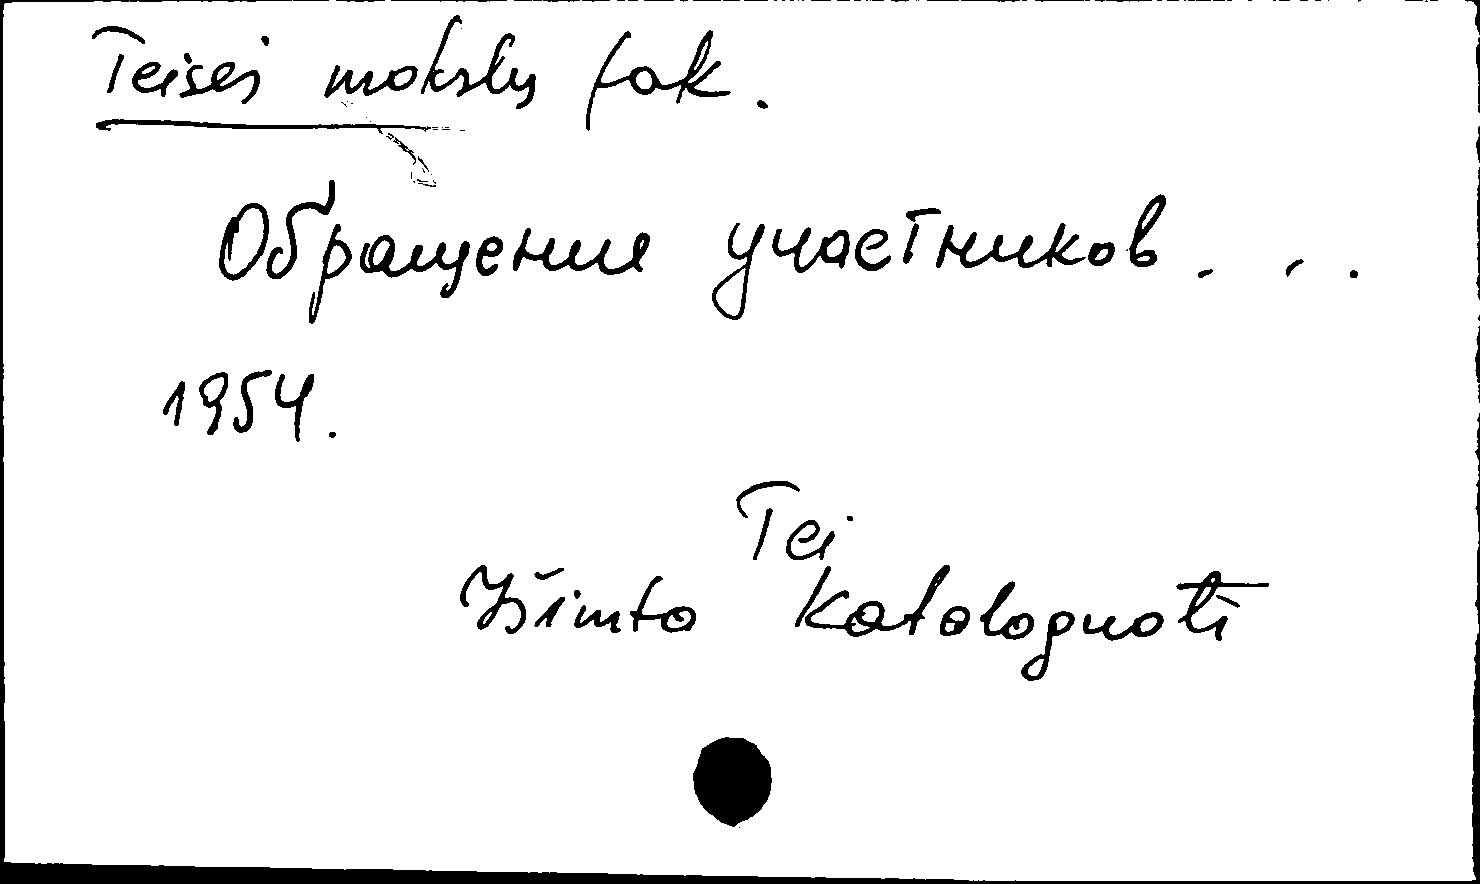 Teisės mokslų fak.
Обращение участников...
1954.
Tei
Išimta Kataloguoti